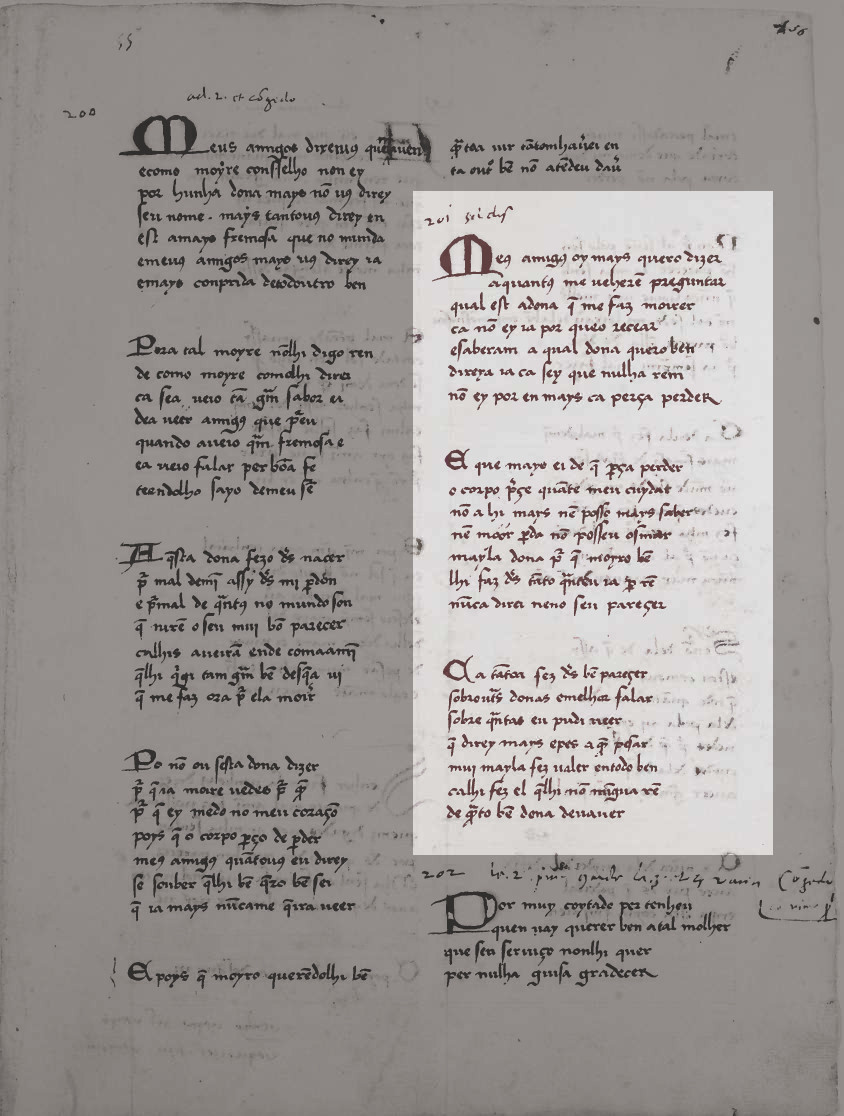 55
ad. 2. et cõgedo
200
Meus amigos direivus que
ecomo moyre conselho non ey
por hunha dona mays nõ vus direy
seu nome. mays tantovus direy en
est amays fremosa que no munda
emeus amigos mays vus direy ia
emays conprida detodoutro ben
Pera tal moyre nõlhi digo ren
de como moyre comolhi direi
ca sea veio tã gr̃m sabor ei
dea veer amigꝯ que
quando aveio qr̃m fremosa e
ea veio falar per bõa fe
teendolho sayo demeu sẽ
Aq̃sta dona fezo dꝰs nacer
pr̃ mal demĩ assy dꝰs mi ꝑdon
e pr̃mal de qr̃ntꝯ no mundo son
q̃ virẽ o seu mui bõ parecer
calhis aveirã ende comaamĩ
q̃lhi tam gr̃m bẽ desq̃a vi
q̃ me faz ora pr̃ ela moir̃
Po nõ ou sesta dona dizer
pr̃ q̃ ia moire vedes pr̃ q̃
pr̃ q̃ ey medo no meu coraçõ
poys q̃ o corpo ꝑço de ꝑder
meꝯ amigꝯ quãtovus eu direy
se souber q̃lhi bẽ q̃ro bẽ sei
q̃ ia mays nũcame q̃ira veer
E poys q̃ moyro querẽdolhi bẽ
ta out̃ bẽ nõ atẽdeu
201
Meꝯ amigꝯ oy mays quero dizer
aquantꝯ me veherẽ preguntar
qual est adona q̃ me faz moirer
ca nõ ey ia por queo recear
esaberam a qual dona quero ben
direya ia ca sey que nulha rem
nõ ey por en mays ca perça perder
E que mayo ei de q̃ ꝑça perder
o corpo pr̃çe quãte meu cuydar
nõ a hi mays nẽ posso mays saber
nẽ moor ꝑda nõ posseu osmar
mayla dona pr̃ q̃ moyro bẽ
lhi faz dꝰs tãto qr̃nteu ia ꝑ rẽ
nũca direi neno seu pareçer
Ca tãtoi fez dꝰs bẽ pareçer
sobrovtꝰs donas emelhor falar
sobre qr̃ntas eu pudi veer
q̃ direy mays epes aq̃ pesar
mui mayla fez valer entodo ben
calhi fez el q̃lhi nõ mĩgua rẽ
de qr̃to bẽ dona devaver
202
Por muy coytado per tenheu
quen uay querer ben atal molher
que seu serviço nonlhi quer
per nulha guisa gradecer